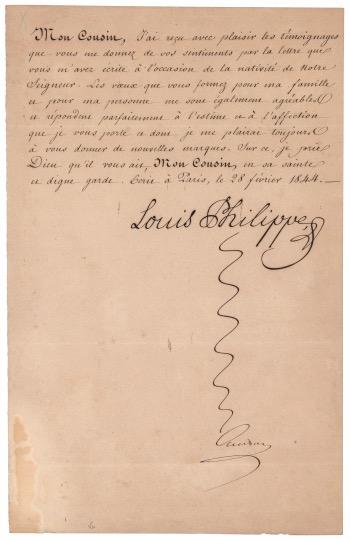 Mon Cousin, J'ai reçu avec plaisir les témoignages
que vous me donnez de vos sentiments par la lettre que
vous m'avez écrite à l'occasion de la nativité de Notre
Seigneur. Les vœux que vous formez pour ma famille
et pour ma personne me sont également agréables
et répondent parfaitement à l'estime et à l'affection
que je vous porte et dont je me plairai toujours
à vous donner de nouvelles marques. Sur ce, je prie
Dieu qu'il vous ait, Mon Cousin, en sa sainte
et digne garde. Écrit à Paris, le 28 février 1844.
Louis Philippe